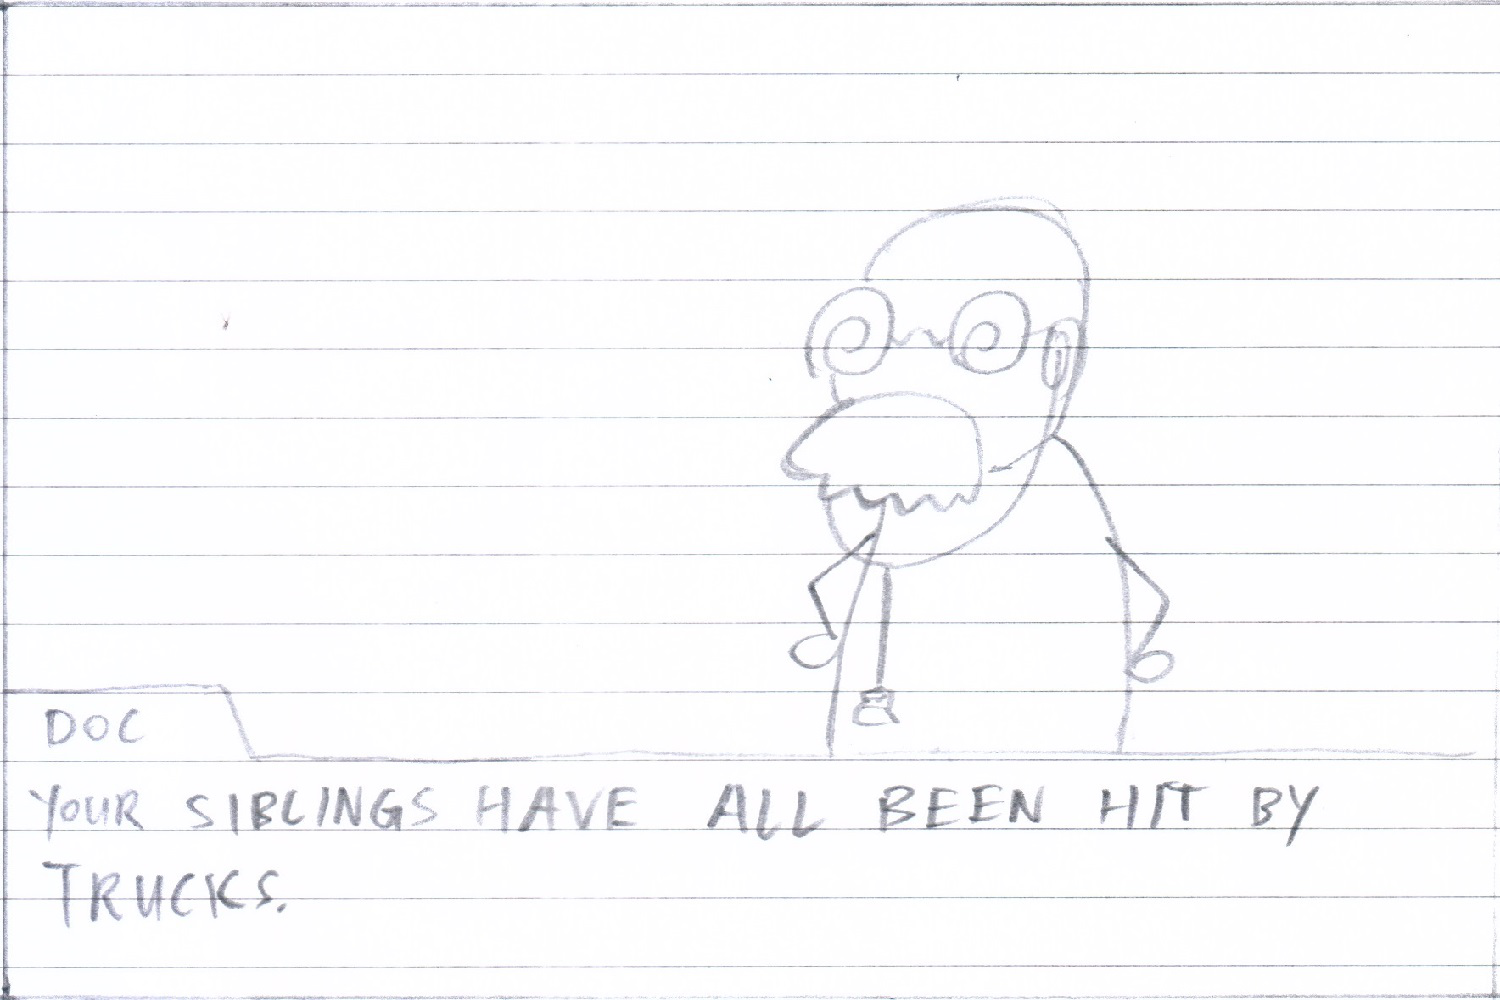 DOC
YOUR SIBLINGS HAVE ALL BEEN HIT BY
TRUCKS.